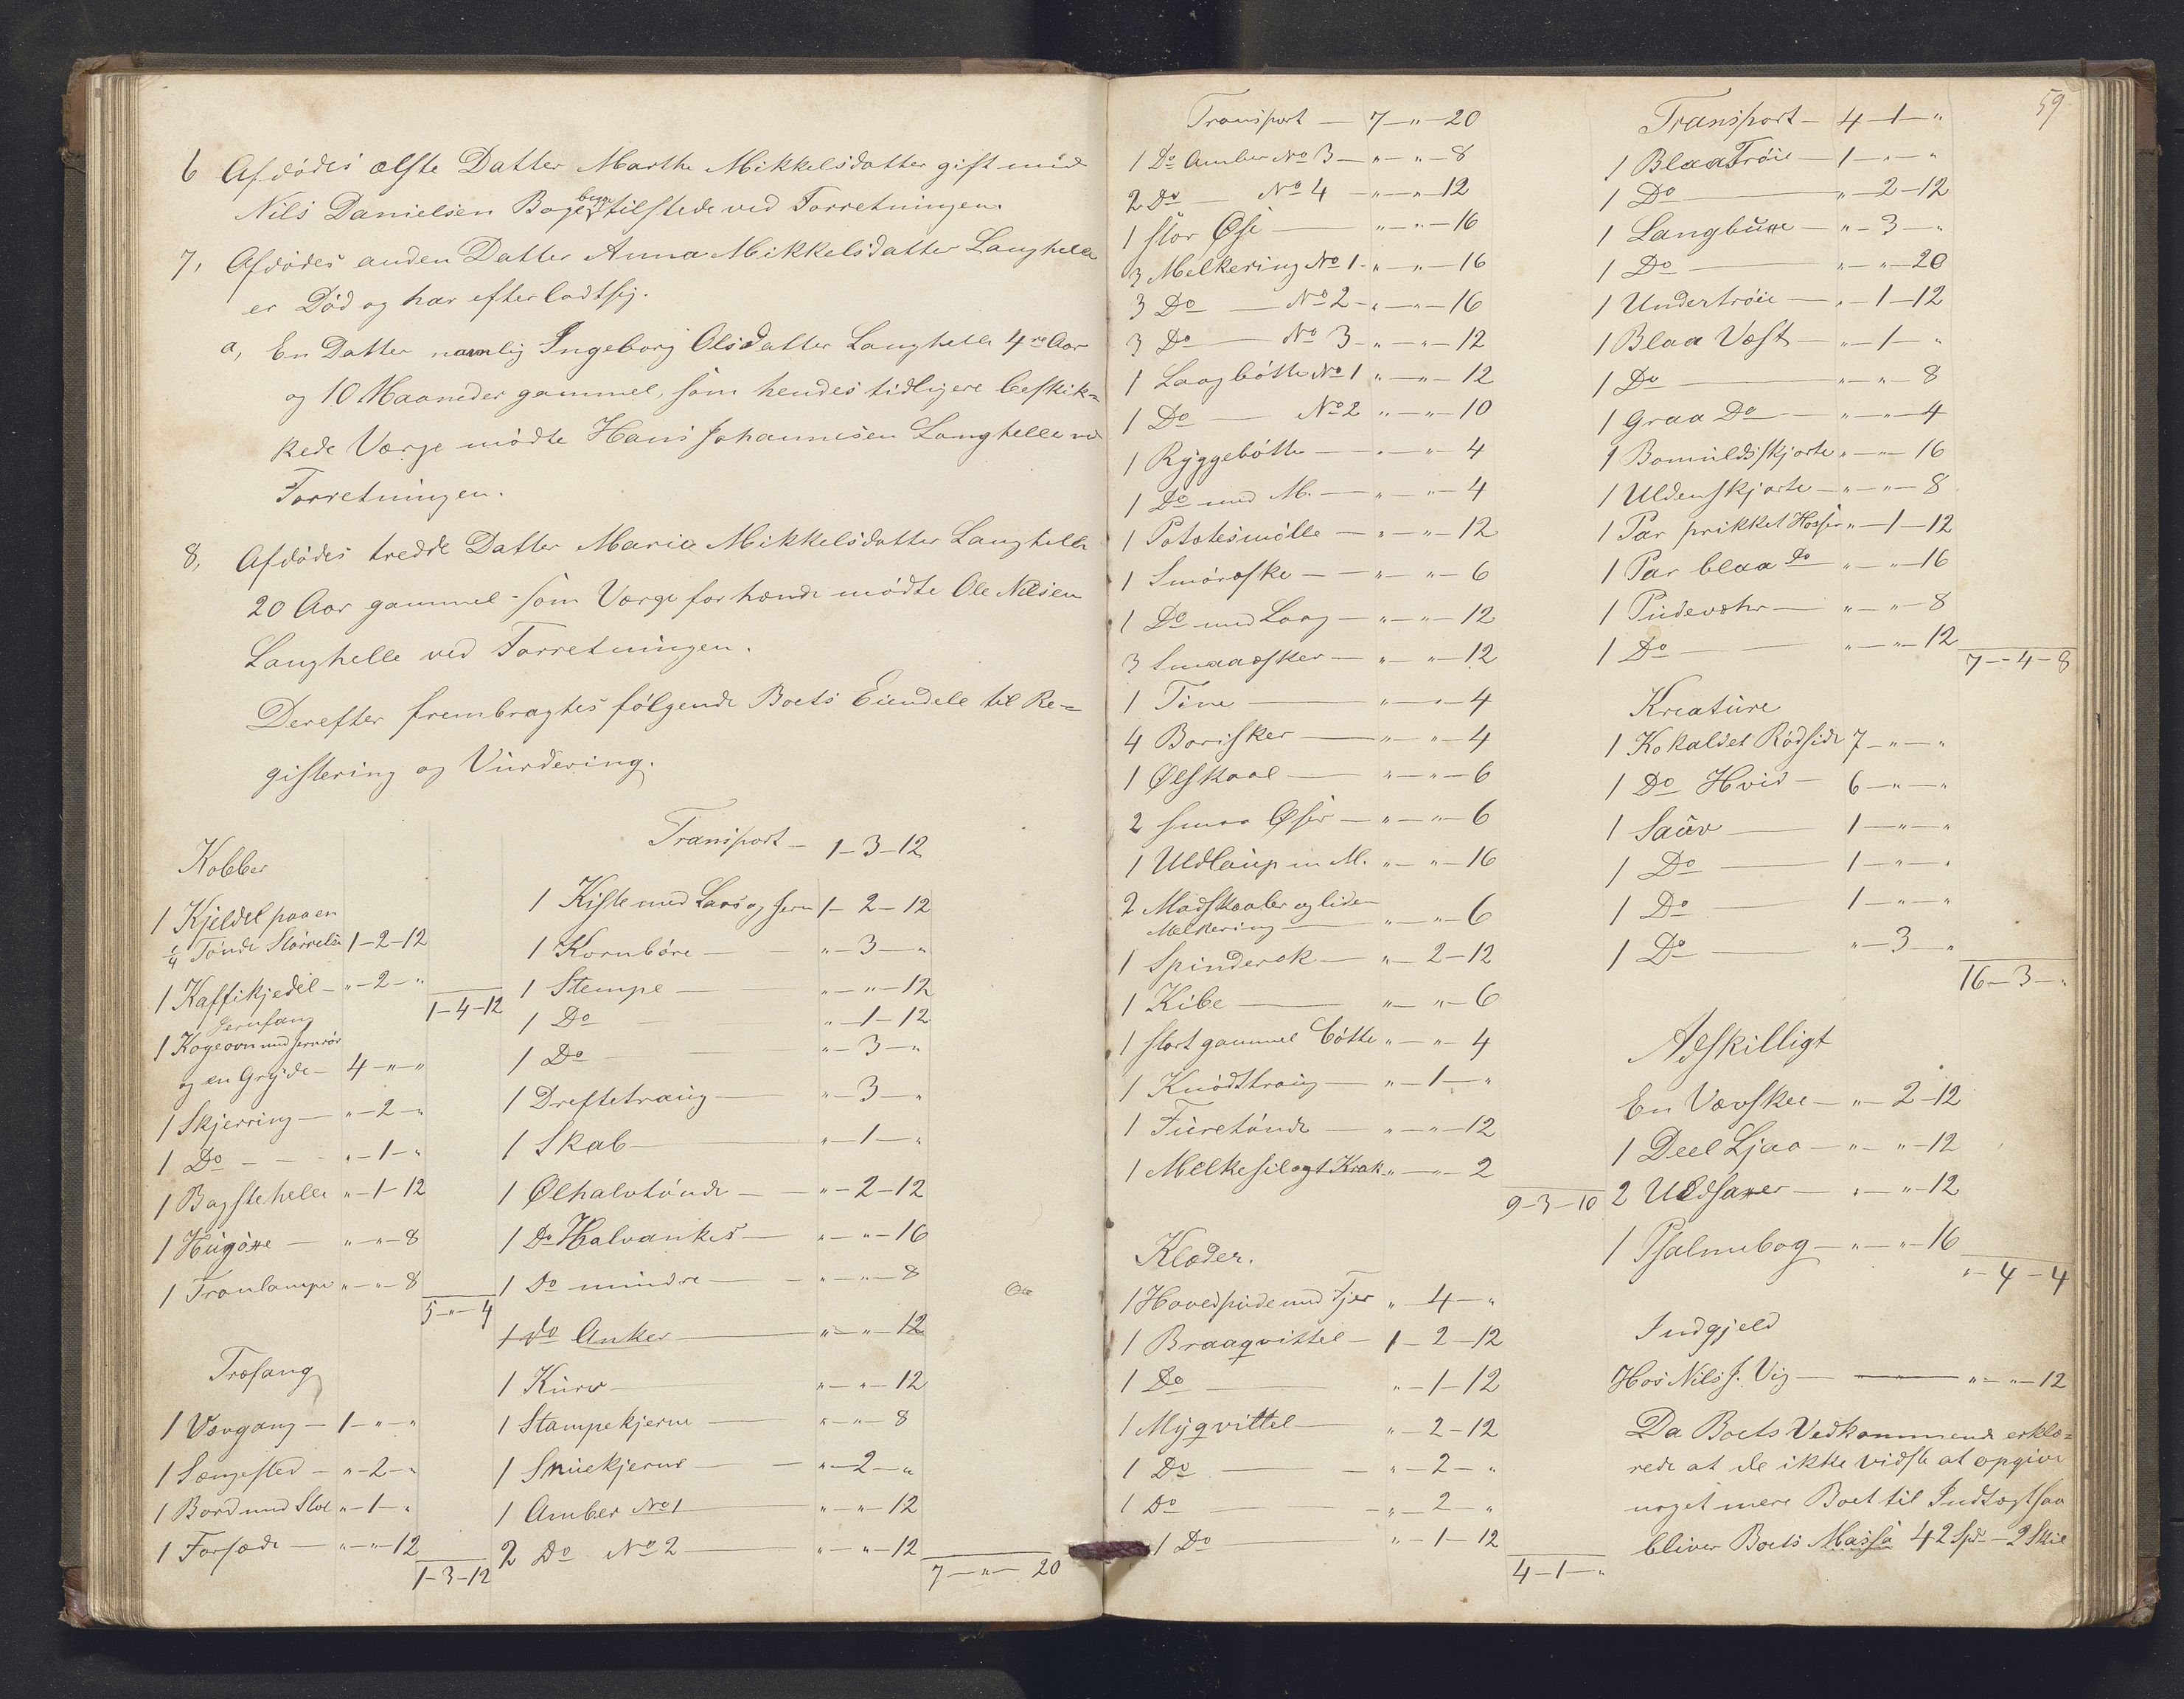 6 Afdødes ælste Datter Marthe Mikkelsdatter gift med
Nils Danielsen Boge begge tilstede ved Forretningen.
7, Afdødes anden Datter Anna Mikkelsdatter Langhelle
er Død og har efterladt sig.
a, En Datter navnlig Ingeborg Olsdatter Langhelle 4re Aar
og 10 Maaneder gammel, som hendes tidligere beskik=
kede Værge mødte Hans Johannesen Langhelle ved
Forretningen.
8, Afdødes tredde Datter Maria Mikkelsdatter Langhelle
20 Aar gammel som Værge for hende mødte Ole Nilsen
Langhelle ved Forretningen.
Derefter frembragtes følgende Boets Eiendele til Re=
gistering og Vurdering.
Kobber
1 Kjeldel paa en
1/4 Tønde Størrelse 1–2–12
1 Kaffikjedel – „–2–„
1–4–12
Jernfang
1 Kogeovn med Jernrør
og en Gryde – 4–„–„
1 Skjerring – „–2–„
1 Do – – „–1–„
1 Bagstehelle „–1–12
1 Hugøxe – „–„–8
1 Tranlampe „–„–8
5–„–4
Træfang
1 Vævgang – 1–„–„
1 Sængested – „–2–„
1 Bord med Stol „–1–„
1 Forsæde – „–„–12
1–3–12
Transport – 1–3–12
1 Kiste med Laas og Jern 1–2–12
1 Kornbøre – „–3–„
1 Stempe – „–„–12
1 Do – „–1–12
1 Do – „–3–„
1 Dreftetraug – „–3–„
1 Skab – „–1–„
1 Ølhalvtønde – „–2–12
1 Do Halvankes – „–„–16
1 Do mindre – „–„–8
1 do Anker – „–„–12
1 Kurv – „–„–12
1 Stampekjerne – „–„–8
1 Snuekjerne – „–2–„
1 Amber No 1 – „–„–12
2 Do No 2 – „–„–12
7–„–20
59
Transport – 7–„–20
1 Do Amber No 3 – „–„–8
2 Do – No 4 – „–„–12
1 stor Øse – „–„–16
3 Melkering No 1 – „–„–16
3 Do – No 2 – „–„–16
3 Do – No 3 – „–„–12
1 Laagbøtte No 1 „–„–12
1 Do – No 2 „–„–10
1 Ryggebøtte – „–„–4
1 Do med M. – „–„–4
1 Potatesmølle – „–„–12
1 Smøræske – „–„–6
1 Do med Laag – „–„–12
3 Smaaæsker – „–„–12
1 Tine – „–„–4
4 Borisker – „–„–4
1 Ølskaal – „–„–6
2 smaa Øser – „–„–6
1 Uldlaup m M. „–„–16
2 Madskaaler og liden
Melkering – „–„–6
1 Spinderok – „–2–12
1 Kibe – „–„–6
1 stort gammel Bøtte „–„–4
1 Knødttraug – „–1–„
1 Füretønde – „–„–12
1 Melkesil og 1 Krak „–„–2
9–3–10
Klæder.
1 Hovedpude med Fjer „–4–„
1 Braaqvittel – 1–2–12
1 Do – „–1–12
1 Myqvittel – „–2–12
1 Do – „–2–„
1 Do – „–2–„
1 Do – „–1–12
4–1–„
Transport – 4–1–„
1 Blaa Trøie – 1–„–„
1 Do – „–2–12
1 Langbuxe – „–3–„
1 Do – „–„–20
1 Undertrøie – „–1–12
1 Blaa Væst – „–1–„
1 Do – „–„–8
1 Graa Do – „–„–4
1 Bomuldsskjorte „–„–16
1 Uldenskjorte – „–„–8
1 Par prikket Hosser „–1–12
1 Par blaa Do – „–„–16
1 Pudevæhr – „–„–8
1 Do – „–„–12
7–4–8
Kreature
1 Ko kaldet Rødside 7–„–„
1 Do Hvid – 6–„–„
1 Sauv – 1–„–„
1 Do – 1–„–„
1 Do – 1–„–„
1 Do – „–3–„
16–3–„
Adskilligt
En Vævskee – „–2–12
1 Deel Ljaa – „–„–12
2 Uldsaxer – „–„–12
1 Psalmebog – „–„–16
„–4–4
Indgjeld
Hos Nils J. Vig – „–„–12
Da Boets Vedkommende erklæ=
rede at de ikke vidste at opgive
noget mere Boet til Indtægt saa
bliver Boets Massa 42 Spd – 2 Skil